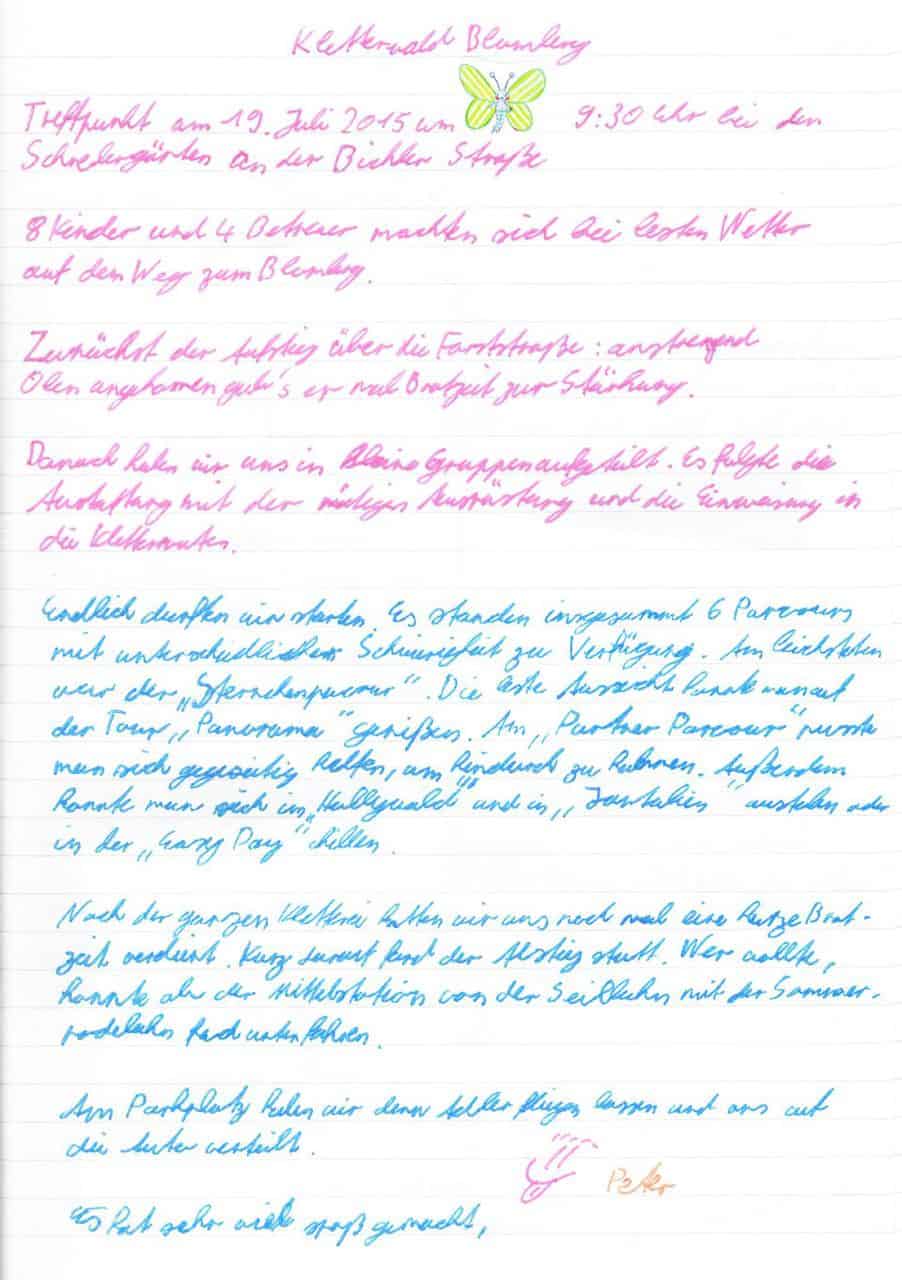 Kletterwald Blomberg
Treffpunkt am 19. Juli 2015 um 9:30 Uhr bei den
Schrebergärten an der Bichler Straße
8 Kinder und 4 Betreuer machten sich bei besten Wetter
auf den Weg zum Blomberg.
Zunächst der Aufstieg über die Forststraße: anstrengend
Oben angekommen gab's er mal Brotzeit zur Stärkung.
Danach haben wir uns in kleine Gruppen aufgeteilt. Es folgte die
Austattung mit der nötigen Ausrüstung und die Einweisung in
die Kletterrouten.
Endlich durften wir starten. Es standen insgesammt 6 Parcours
mit unterschiedlichen Schwierigkeit zu Verfügung. Am leichtsten
war der „Sternchenparcour“. Die beste Aussicht konnte man auf
der Tour „Panorama“ genießen. Am „Partner Parcour“ musste
man sich gegeseitig helfen, um hindurch zu kommen. Außerdem
konnte man sich im und in „Fantasien“ austoben oder
in der chillen.
Nach der ganzen Kletterei hatten wir uns noch mal eine kurze Brot-
zeit verdient. Kurz darauf fand der Abstieg statt. Wer wollte,
konnte ab der Mittelstation von der Seilbahn mit der Sommer-
rodelbahn hinunter fahren.
Am Parkplatz haben wir denn Adler fliegen lassen und uns auf
die Autos verteilt.
Peter
Es hat sehr viel spaß gemacht,